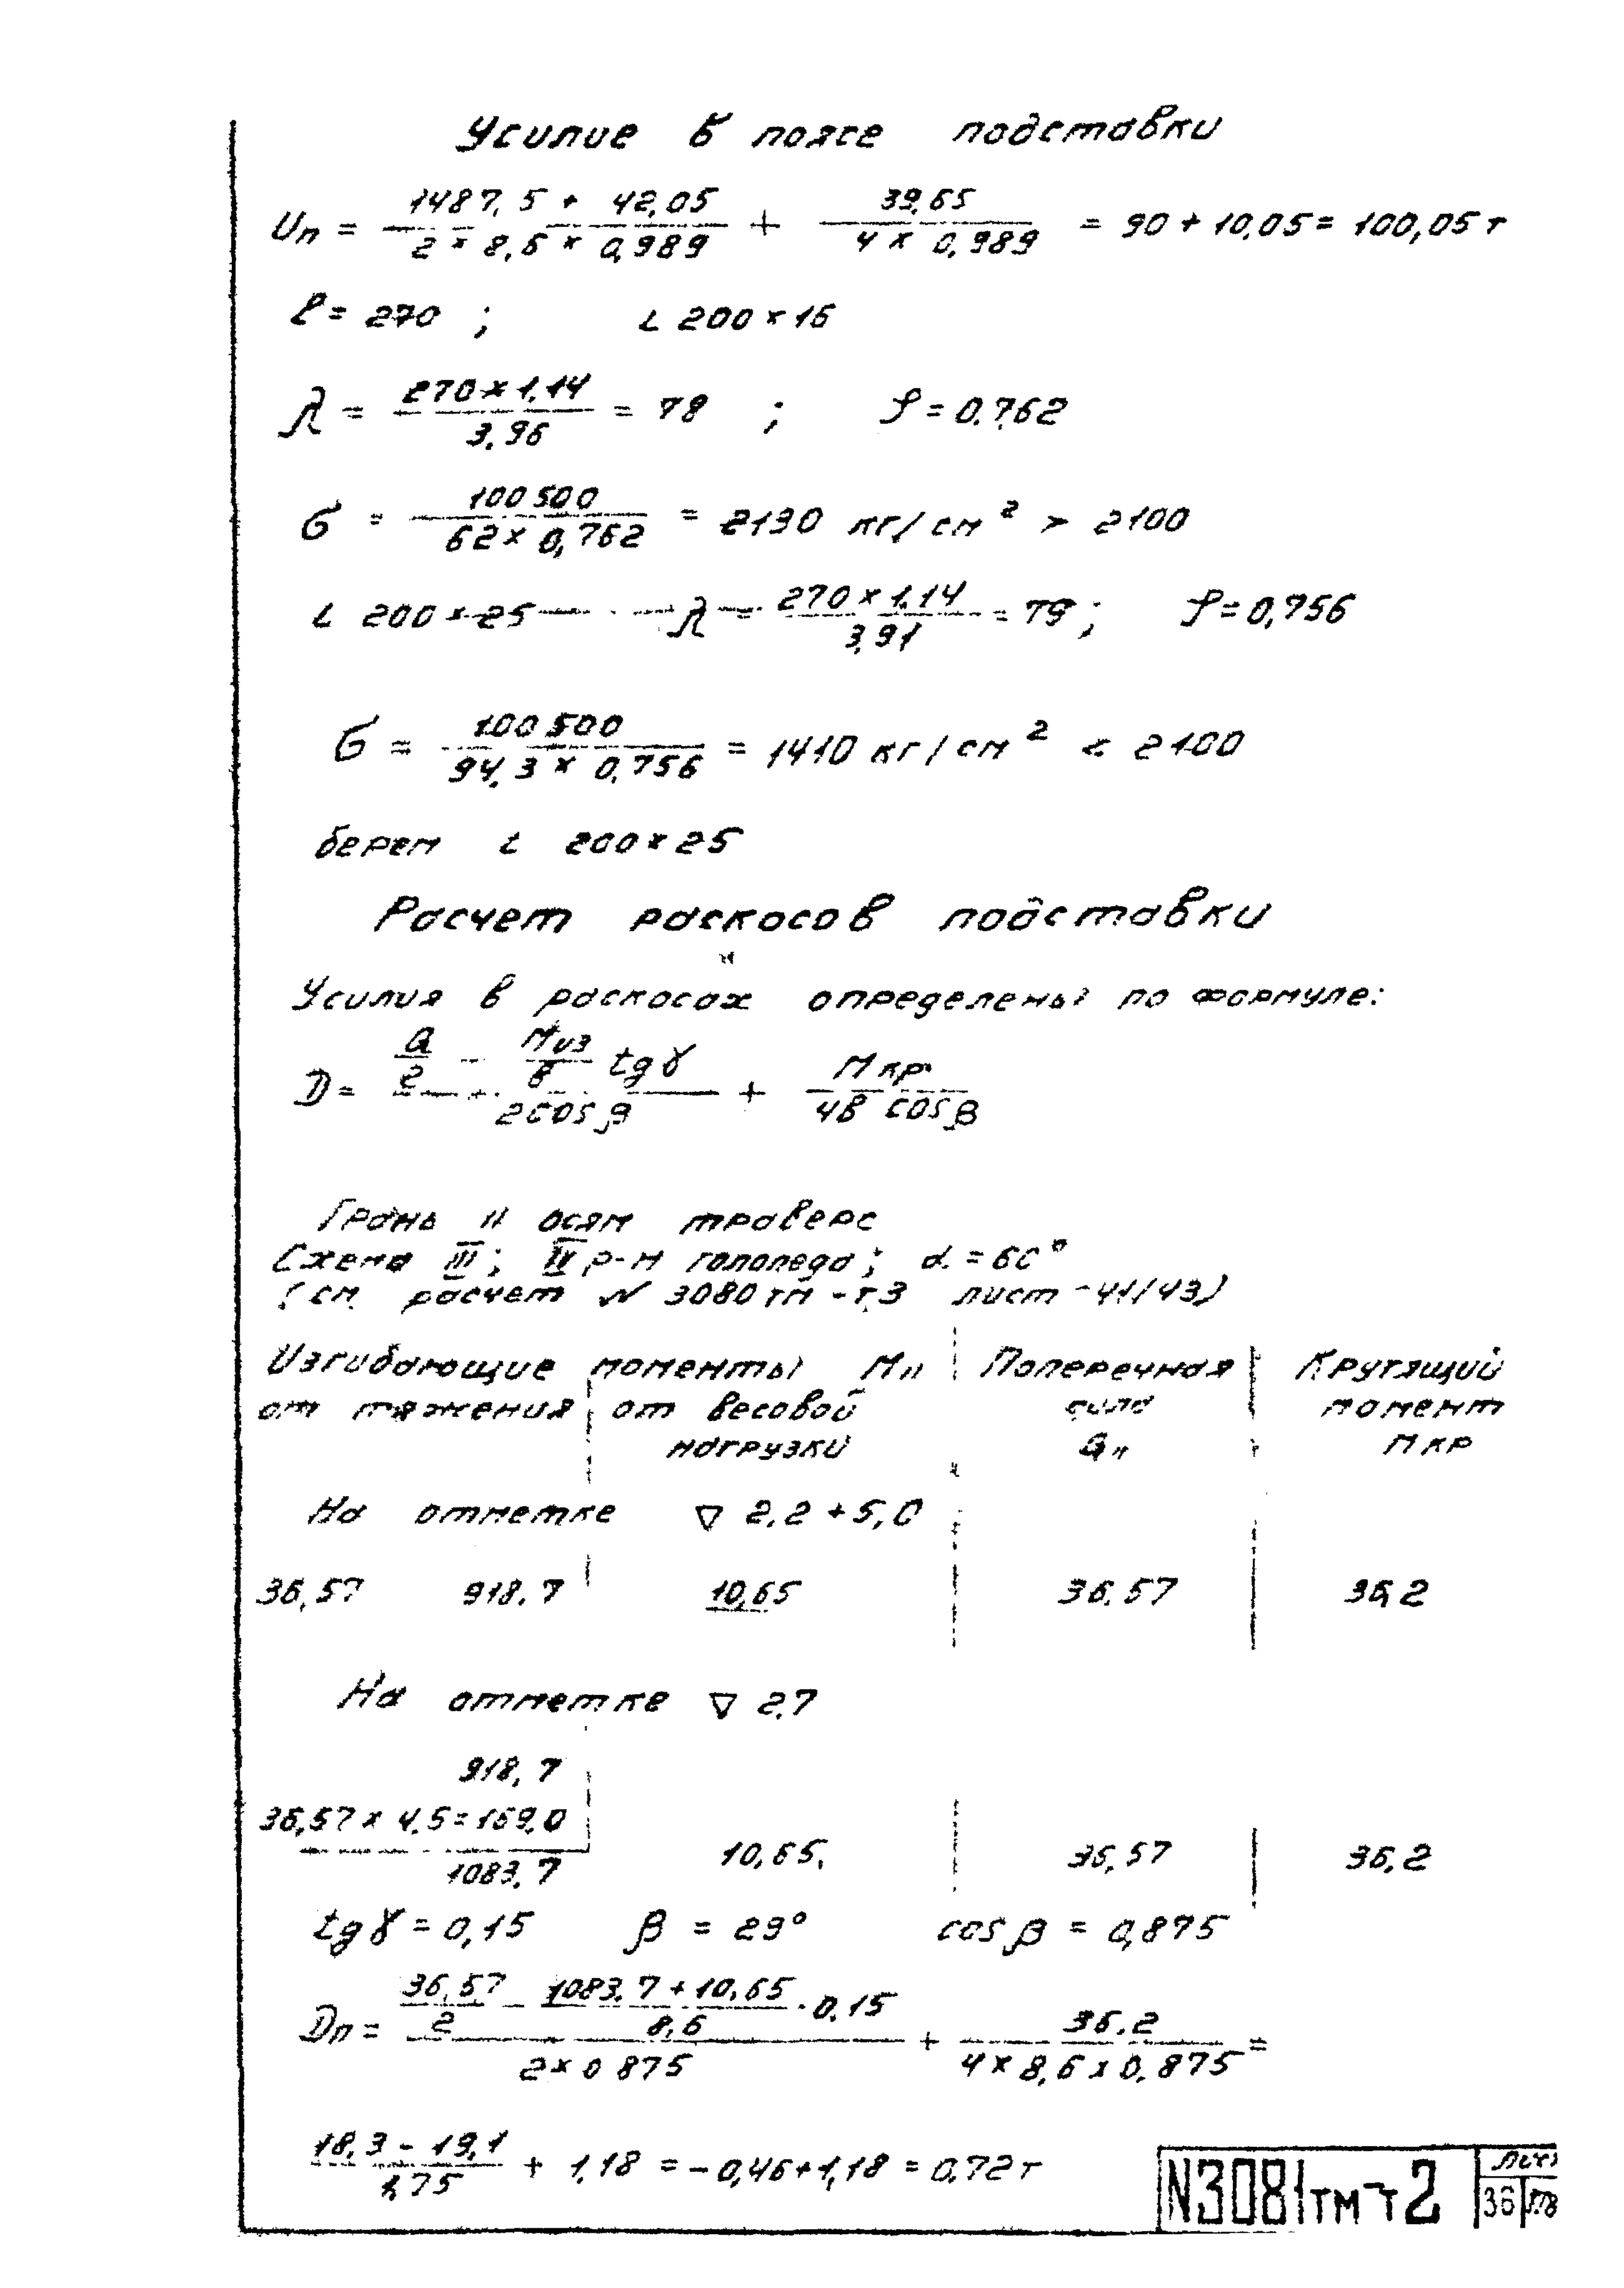 Усилие в поясе подставки
Uп = (1487,5 + 42,05) / (2 × 8,6 × 0,989) + 39,65 / (4 × 0,989) = 90 + 10,05 = 100,05 т
ℓ = 270 ; L 200 × 16
λ = (270 × 1,14) / 3,96 = 78 ; φ = 0.762
σ = 100500 / (62 × 0,762) = 2130 кг/см² > 2100
L 200 × 25 — λ = (270 × 1,14) / 3,91 = 79 ; φ = 0,756
σ = 100500 / (94,3 × 0,756) = 1410 кг/см² < 2100
берем L 200 × 25
Расчет раскосов подставки
Усилия в раскосах определены по формуле:
D = (Q/2 - Mиз/в tgγ) / (2cosβ) + Mкр / (4в cosβ)
Грань II осям траверс
Схема III; IV р-н гололеда; α = 60°
(см расчет N 3080тм-т3 лист-41/43)
Изгибающие моменты MII Поперечная Крутящий
от тяжения от весовой сила момент
нагрузки QII Mкр
На отметке ▽ 2,2 + 5,0
36,57 918,7 10,65 36,57 36,2
На отметке ▽ 2,7
918,7
36,57 × 4,5 = 169,0
1083,7 10,65 36,57 36,2
tgγ = 0,15 β = 29° cosβ = 0,875
Dп = (36,57/2 - (1083,7 + 10,65)/8,6 · 0,15) / (2 × 0875) + 36,2 / (4 × 8,6 × 0,875) =
(18,3 - 19,1) / 1,75 + 1,18 = -0,46 + 1,18 = 0,72 т
N3081тм-т2
Лист
36